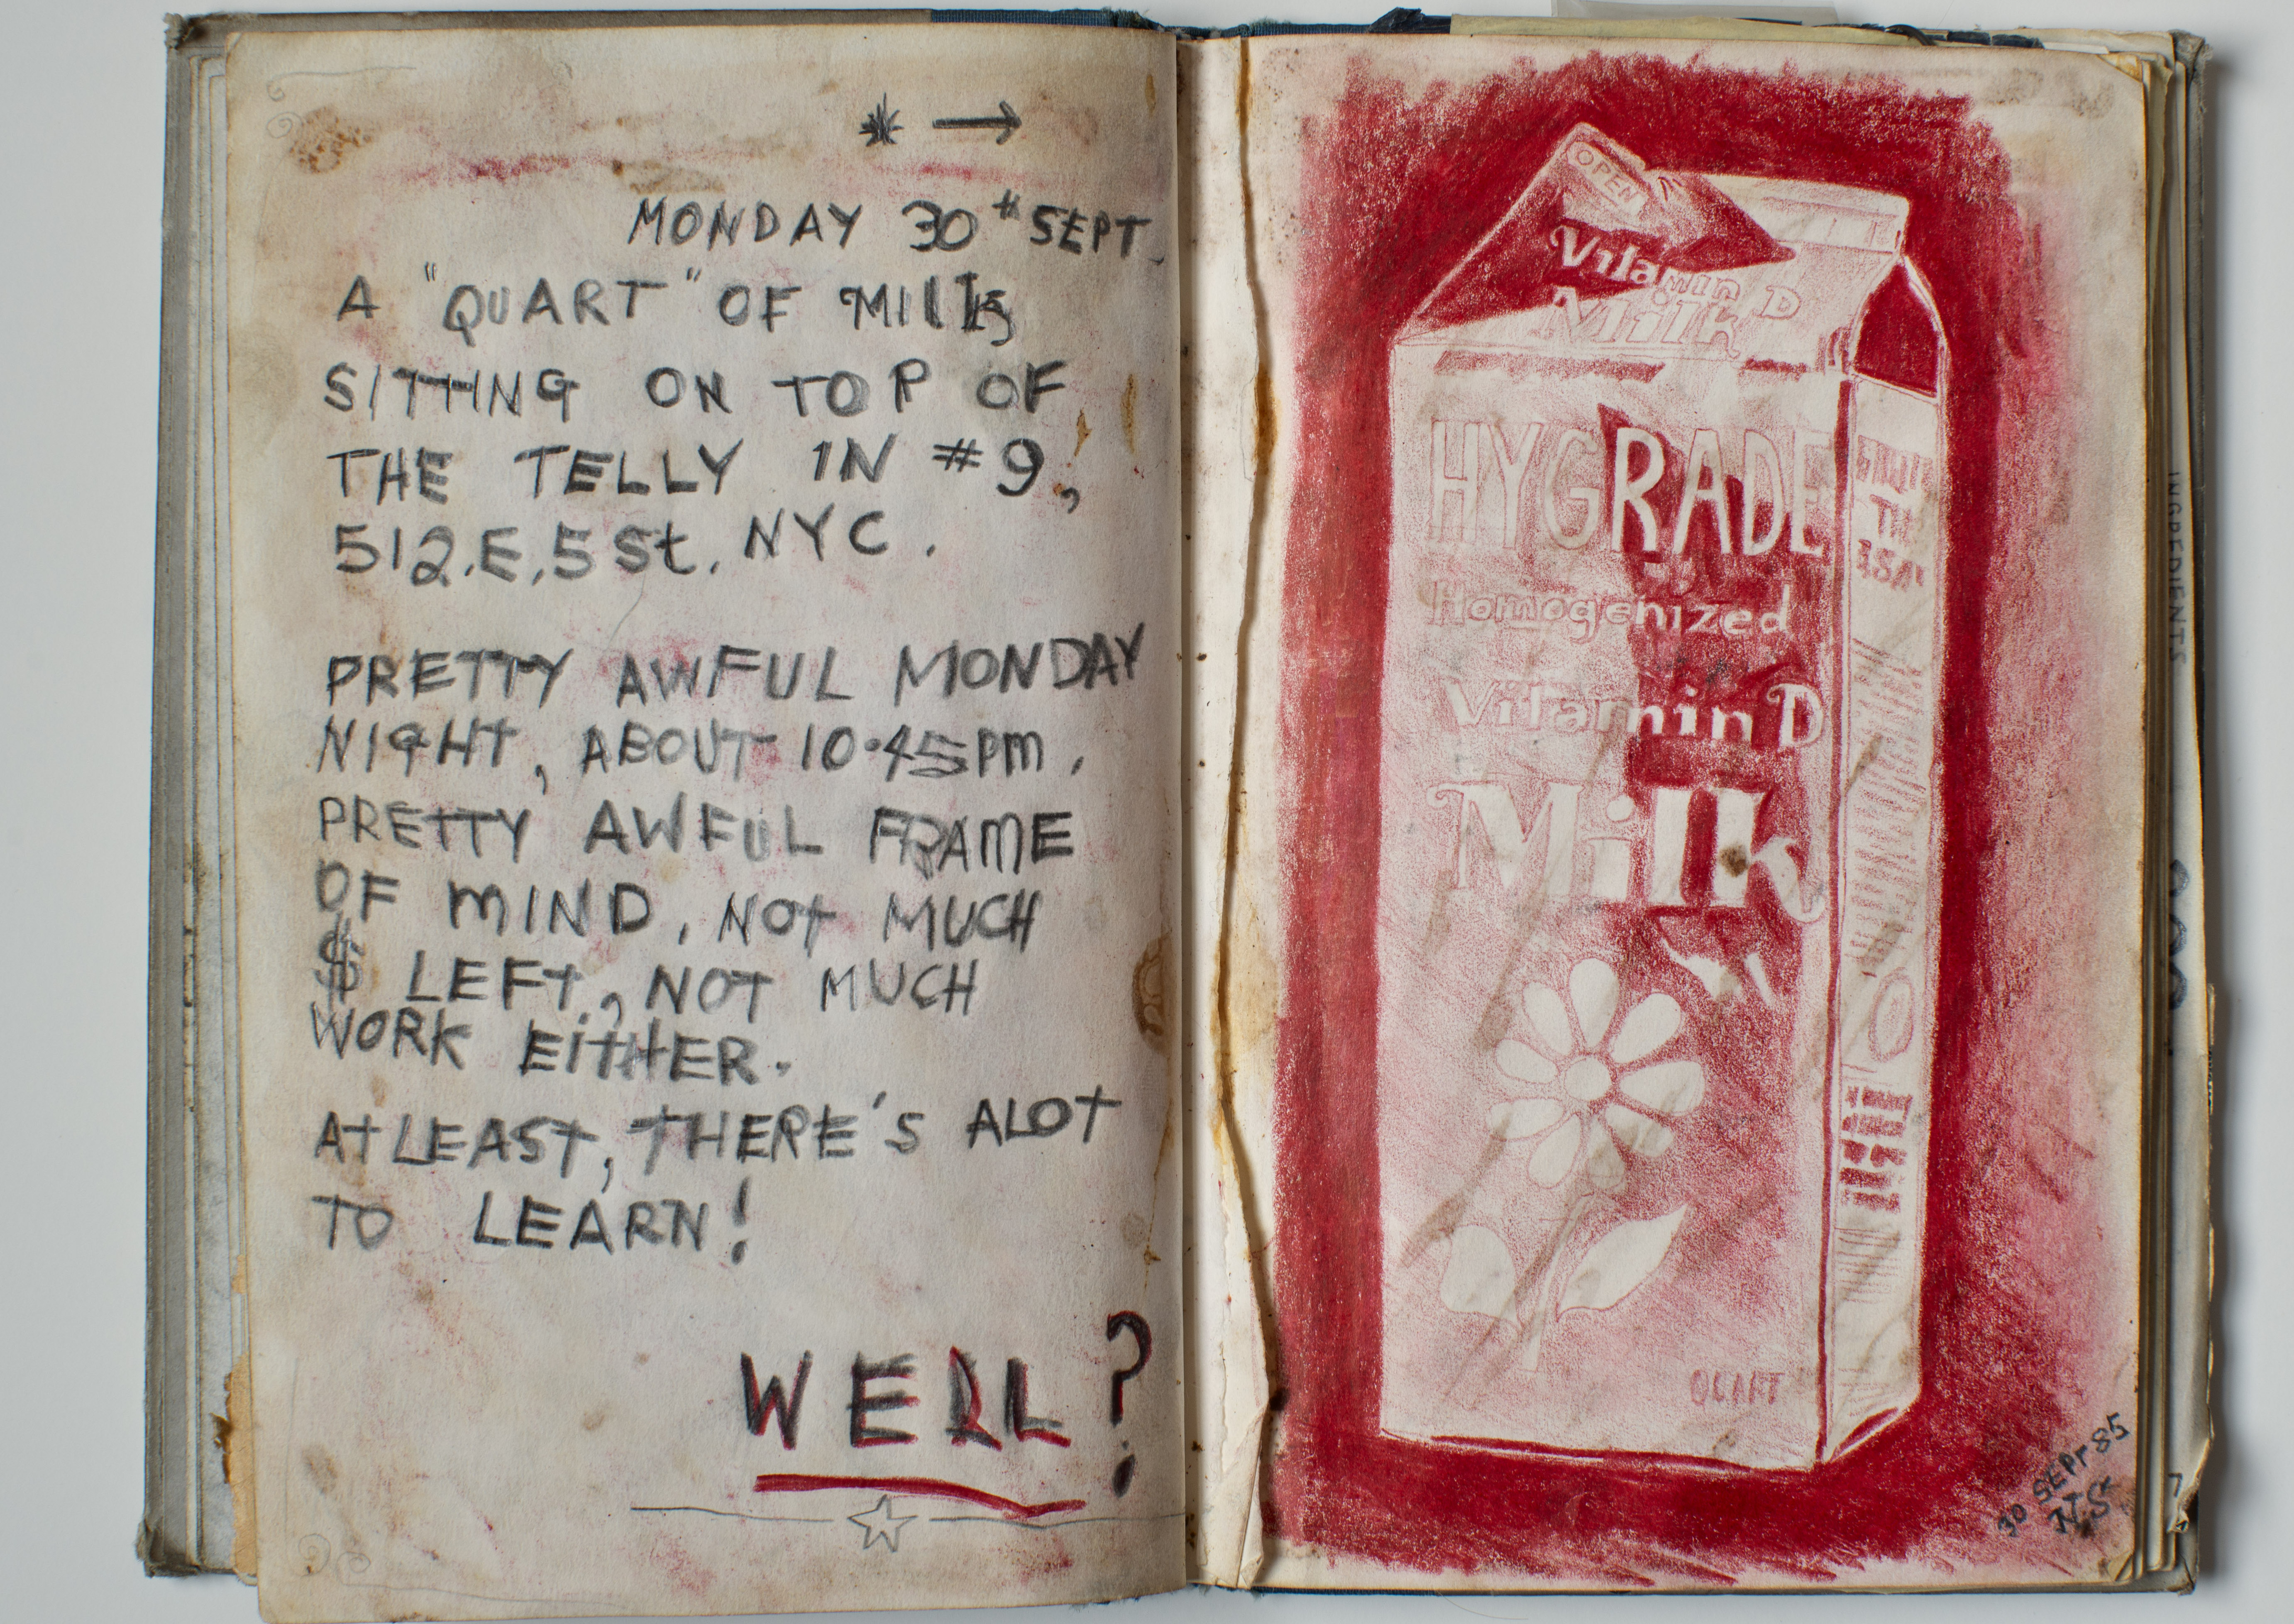 MONDAY 30th SEPT.
A "QUART" OF MILK
SITTING ON TOP OF
THE TELLY IN #9,
512.E.5 St. NYC.
PRETTY AWFUL MONDAY
NIGHT, ABOUT 10·45pm.
PRETTY AWFUL FRAME
OF MIND, NOT MUCH
$ LEFT, NOT MUCH
WORK EITHER.
AT LEAST, THERE'S ALOT
TO LEARN!
WELL?
OPEN
Vitamin D
Milk
HYGRADE
Homogenized
Vitamin D
Milk
QUART
30 SEPT 85
N.S
INGREDIENTS